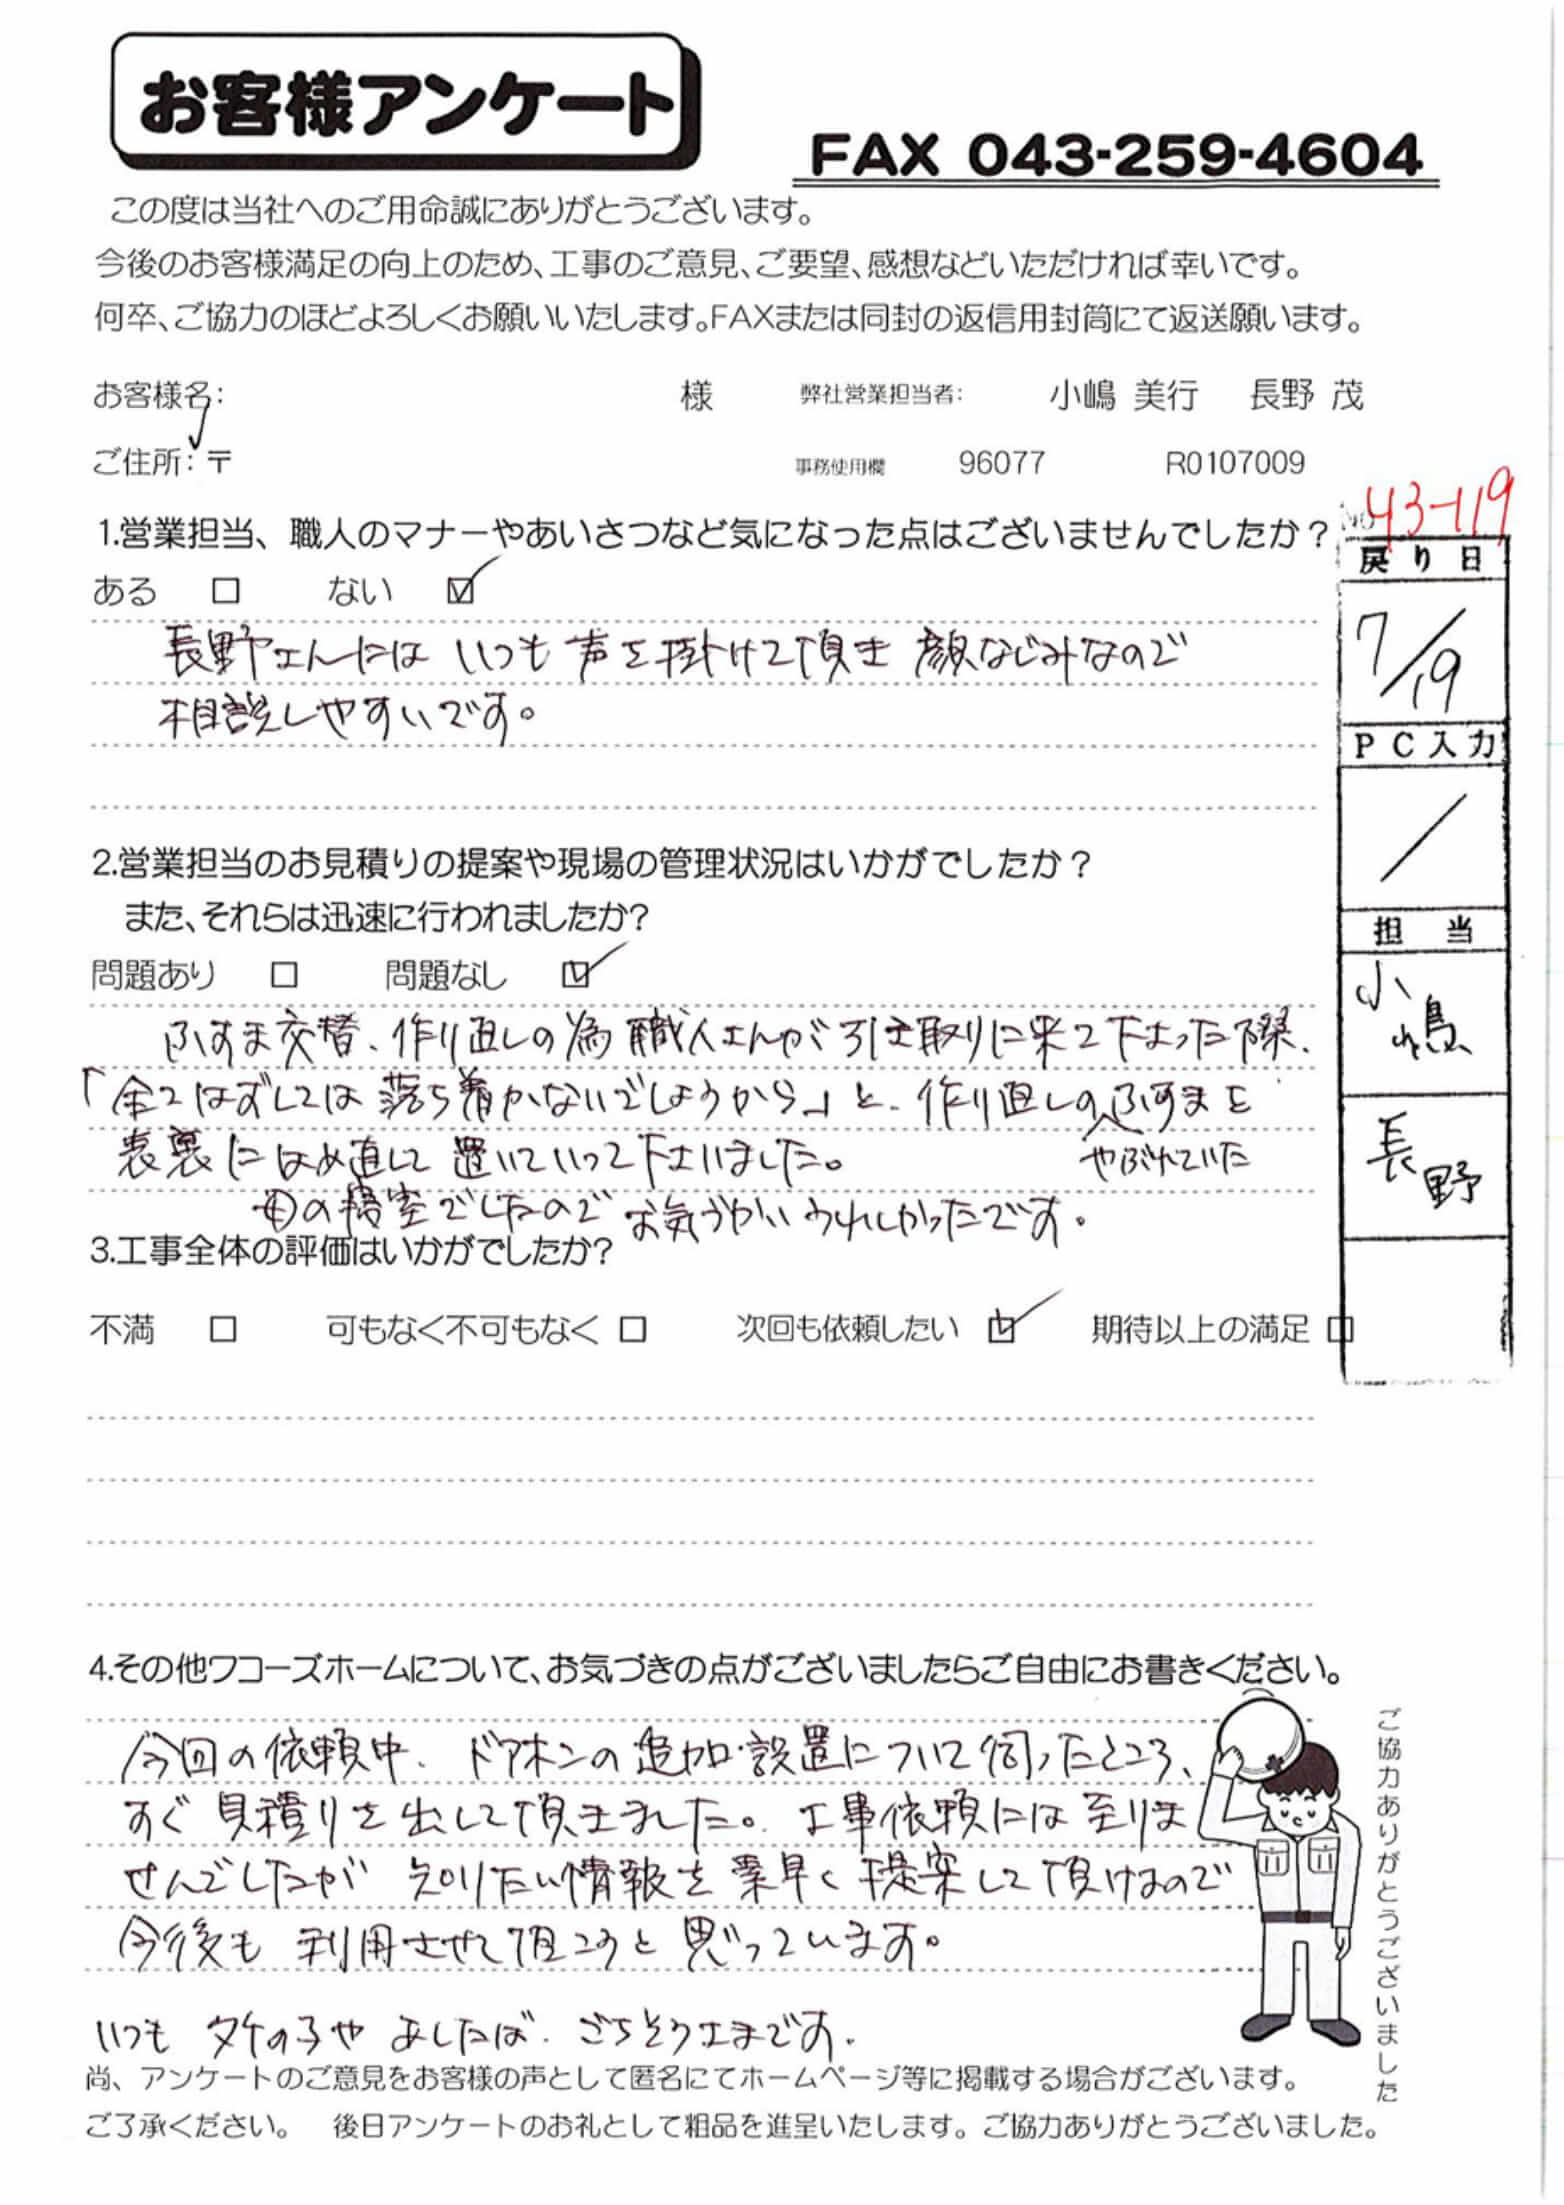 お客様アンケート
FAX 043-259-4604
この度は当社へのご用命誠にありがとうございます。
今後のお客様満足の向上のため、工事のご意見、ご要望、感想などいただければ幸いです。
何卒、ご協力のほどよろしくお願いいたします。FAXまたは同封の返信用封筒にて返送願います。
お客様名: 様 弊社営業担当者: 小嶋 美行 長野 茂
ご住所:〒 事務使用欄 96077 R0107009
No 43-119
1.営業担当、職人のマナーやあいさつなど気になった点はございませんでしたか?
戻り日
ある □ ない ☑
長野さんには いつも 声を掛けて頂き 顔なじみなので
相談しやすいです。
7/19
PC入力
/
2.営業担当のお見積りの提案や現場の管理状況はいかがでしたか?
また、それらは迅速に行われましたか?
担当
問題あり □ 問題なし ☑
小嶋
ふすま交替、作り直しの為 職人さんが引き取りに来て下さった際、
「全てはずしては 落ち着かないでしょうから」と、作り直しの ふすまを
やぶれていた
表裏にはめ直して 置いていって下さいました。
長野
母の寝室でしたので お気づかい うれしかったです。
3.工事全体の評価はいかがでしたか?
不満 □ 可もなく不可もなく □ 次回も依頼したい ☑ 期待以上の満足 □
4.その他ワコーズホームについて、お気づきの点がございましたらご自由にお書きください。
今回の依頼中、ドアホンの追加・設置について伺ったところ、
すぐ 見積りを出して頂きました。工事依頼には至りま
せんでしたが 知りたい情報を素早く提案して頂けるので
今後も 利用させて頂こうと思っています。
いつも タケの子や あしたば、ごちそうさまです。
ご協力ありがとうございました
尚、アンケートのご意見をお客様の声として匿名にてホームページ等に掲載する場合がございます。
ご了承ください。 後日アンケートのお礼として粗品を進呈いたします。ご協力ありがとうございました。